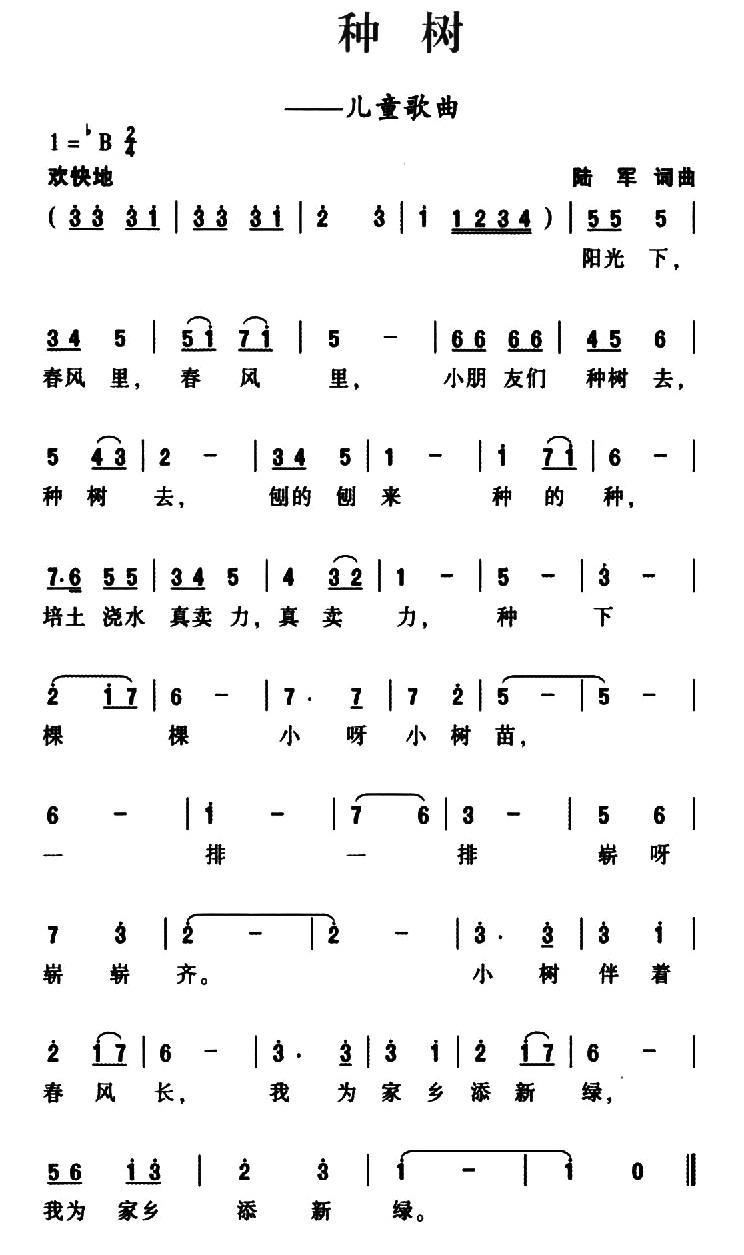 种 树
——儿童歌曲
1=♭B 2/4
欢快地
陆 军 词曲
( 3̇3̇ 3̇1̇ | 3̇3̇ 3̇1̇ | 2̇ 3̇ | 1̇ 1234 ) | 55 5 |
阳光 下，
34 5 | 51̇ 71̇ | 5 － | 66 66 | 45 6 |
春风 里， 春 风 里， 小朋 友们 种树 去，
5 43 | 2 － | 34 5 | 1 － | 1̇ 71̇ | 6 － |
种 树 去， 刨的 刨 来 种 的 种，
7·6 55 | 34 5 | 4 32 | 1 － | 5 － | 3̇ － |
培土 浇水 真卖 力，真 卖 力， 种 下
2̇ 1̇7 | 6 － | 7· 7 | 7 2̇ | 5 － | 5 － |
棵 棵 小 呀 小 树 苗，
6 － | 1̇ － | 7 6 | 3 － | 5 6 |
一 排 一 排 崭 呀
7 3̇ | 2̇ － | 2̇ － | 3̇· 3̇ | 3̇ 1̇ |
崭 崭 齐。 小 树 伴 着
2̇ 1̇7 | 6 － | 3̇· 3̇ | 3̇ 1̇ | 2̇ 1̇7 | 6 － |
春 风 长， 我 为 家 乡 添 新 绿，
56 1̇3̇ | 2̇ 3̇ | 1̇ － | 1̇ 0 ‖
我为 家乡 添 新 绿。